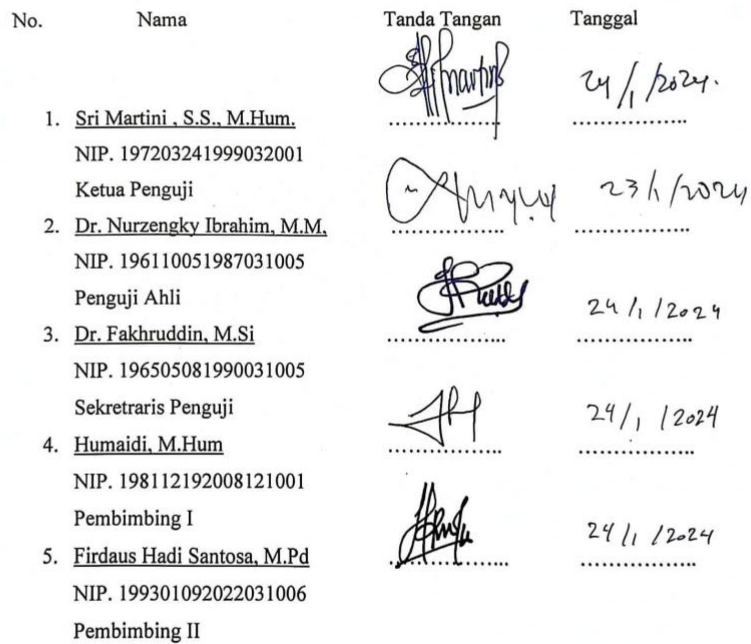 No. Nama Tanda Tangan Tanggal
24/1/2024.
1. Sri Martini , S.S., M.Hum. .................. ..................
NIP. 197203241999032001
Ketua Penguji 23/1/2024
2. Dr. Nurzengky Ibrahim, M.M, .................. ..................
NIP. 196110051987031005
Penguji Ahli 24/1/2024
3. Dr. Fakhruddin, M.Si .................. ..................
NIP. 196505081990031005
Sekretraris Penguji 24/1/2024
4. Humaidi, M.Hum .................. ..................
NIP. 198112192008121001
Pembimbing I 24/1/2024
5. Firdaus Hadi Santosa, M.Pd .................. ..................
NIP. 199301092022031006
Pembimbing II